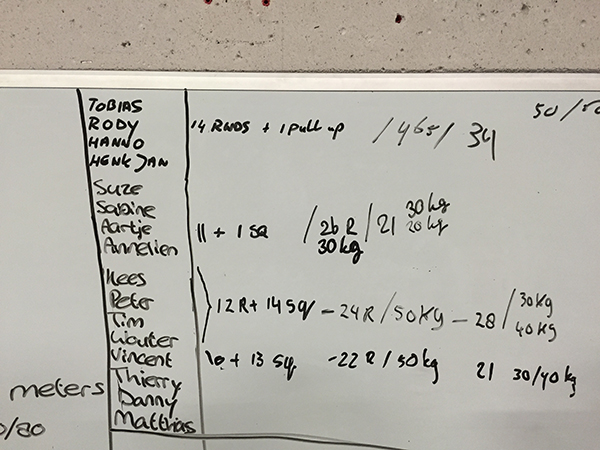 50/50
TOBIAS
RODY 14 RNDS + 1 Pull up /465/ 34
HANNO
HENK JAN
Suze
Sabine 30 kg
Aartje 11 + 1 SQ /26 R /21 20 kg
Annelien 30 kg
Kees
Peter 12 R + 14 SQ - 24 R / 50 KG - 28 / 30 KG
Tim 40 KG
Wouter
Vincent + 13 SQ - 22 R / 50 kg 21 30/40 kg
meters Thierry
Danny
0/80 Matthias